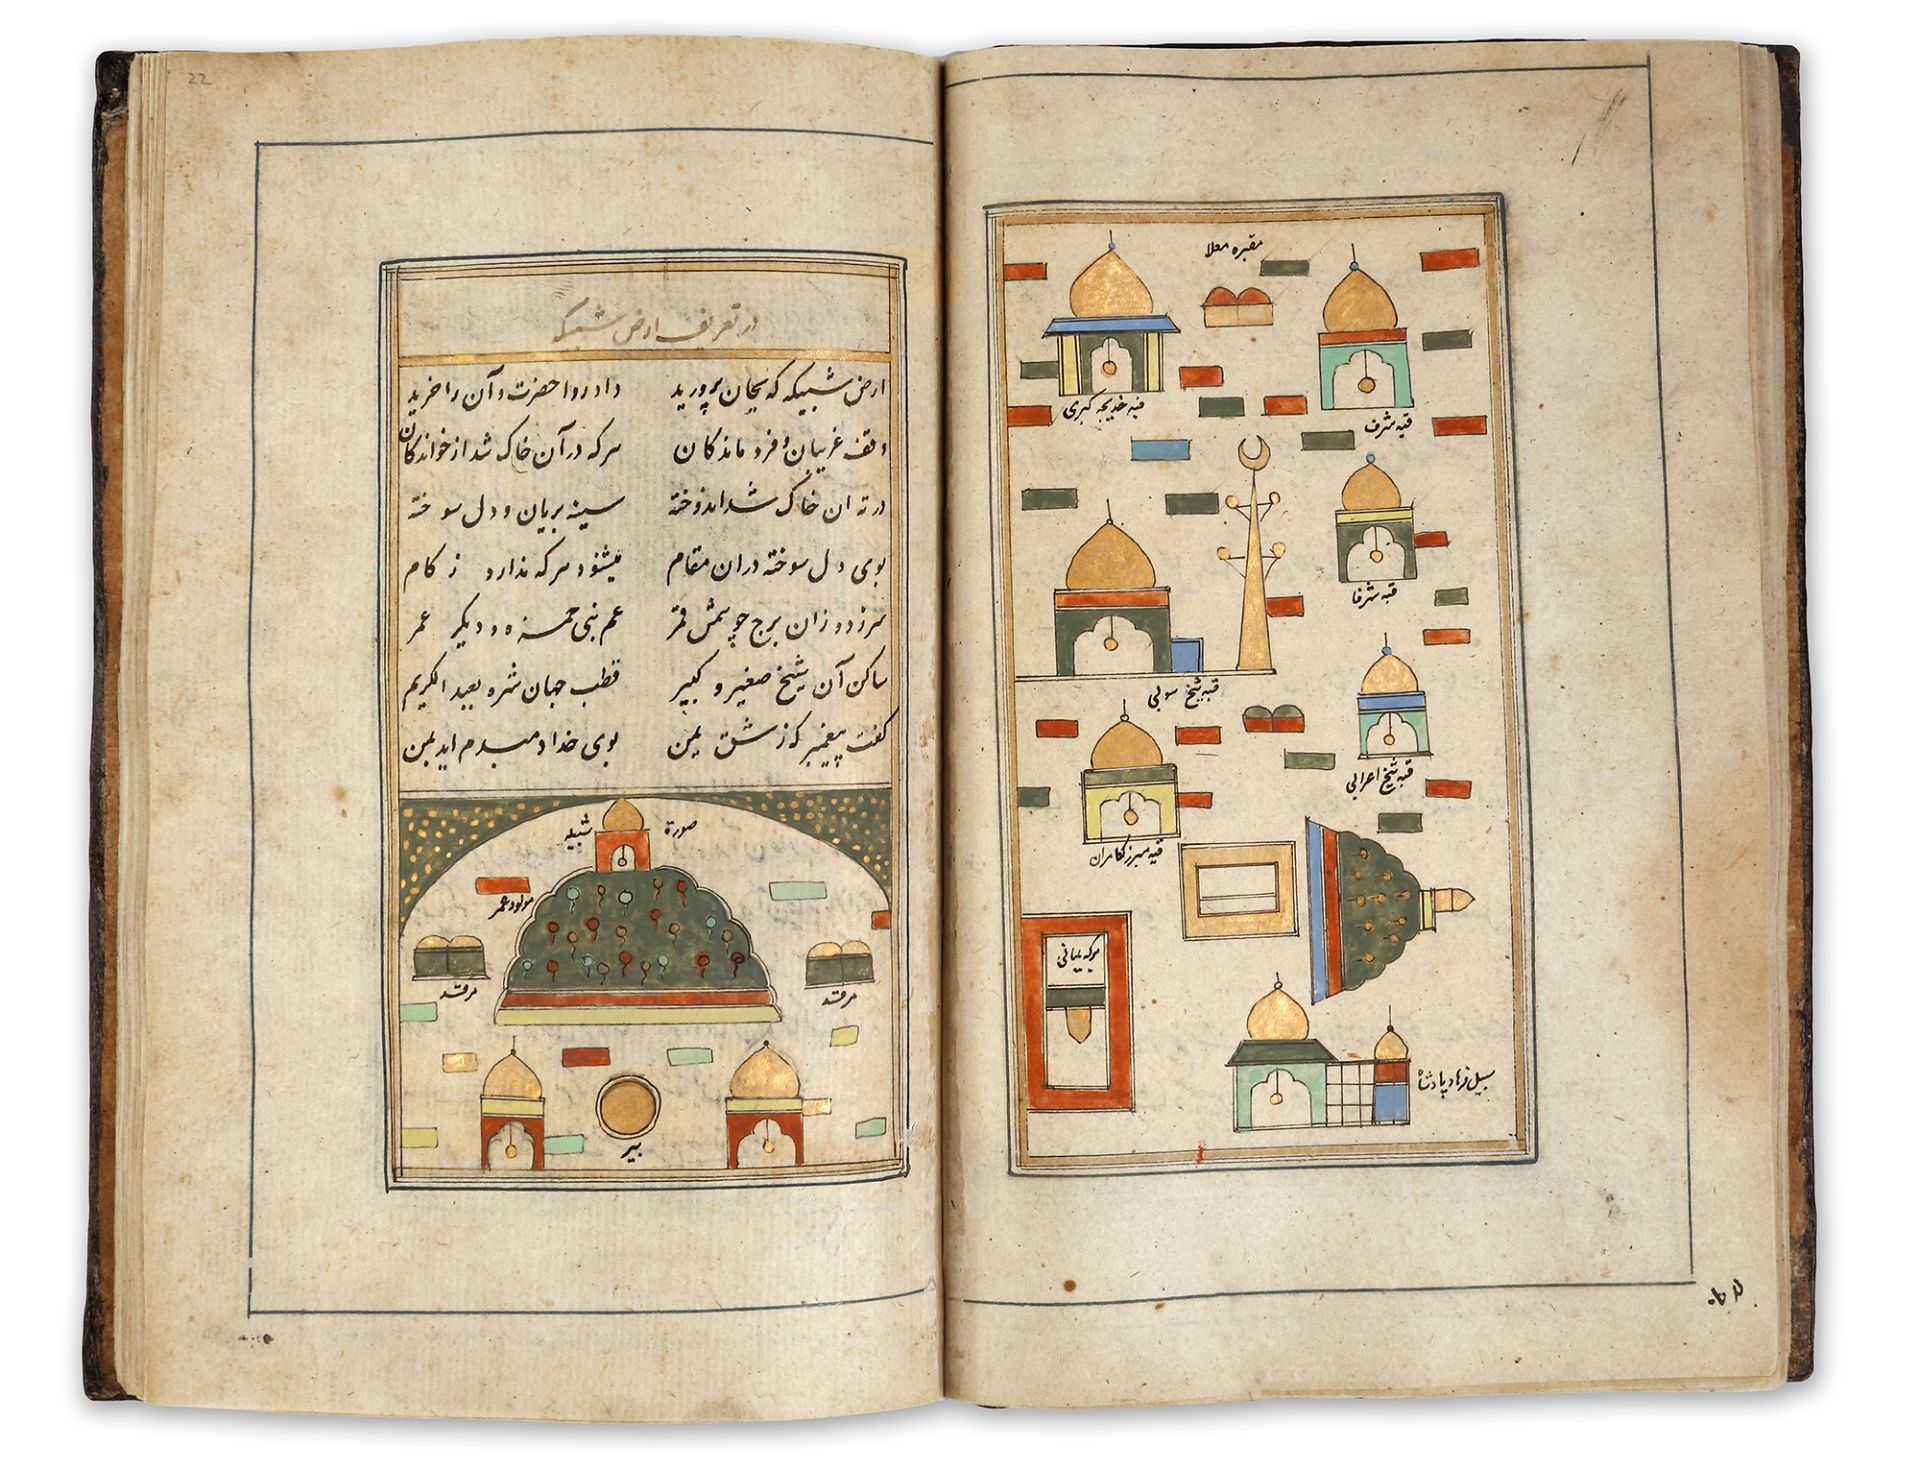 مقبره معلا
قبه خدیجه کبری
قبه شرف
قبه شرفا
قبه شیخ سولی
قبه شیخ اعرابی
قبه میرزا کامران
برکه یمانی
سبیل فرهاد پادشاه
22
در تعریف ارض شبیکه
ارض شبیکه که بجان پرورید داد روا حضرت و آن را خرید
وقف غریبان و فرو ماندکان هرکه در آن خاک شد از خواندکان
در ته ان خاک شد اندوخته سینه بریان و دل سوخته
بوی دل سوخته دران مقام میشنود هرکه ندارد زکام
سرزد وزان برج چو شمس و قمر عم نبی حمزه و دیگر عمر
ساکن آن شیخ صغیر و کبیر قطب جهان شهره بعبد الکریم
گفت پیغمبر که ز شق یمن بوی خدا دمبدم اید بمن
صورة شبیکه
مولود عمر
مرقد
مرقد
بیر